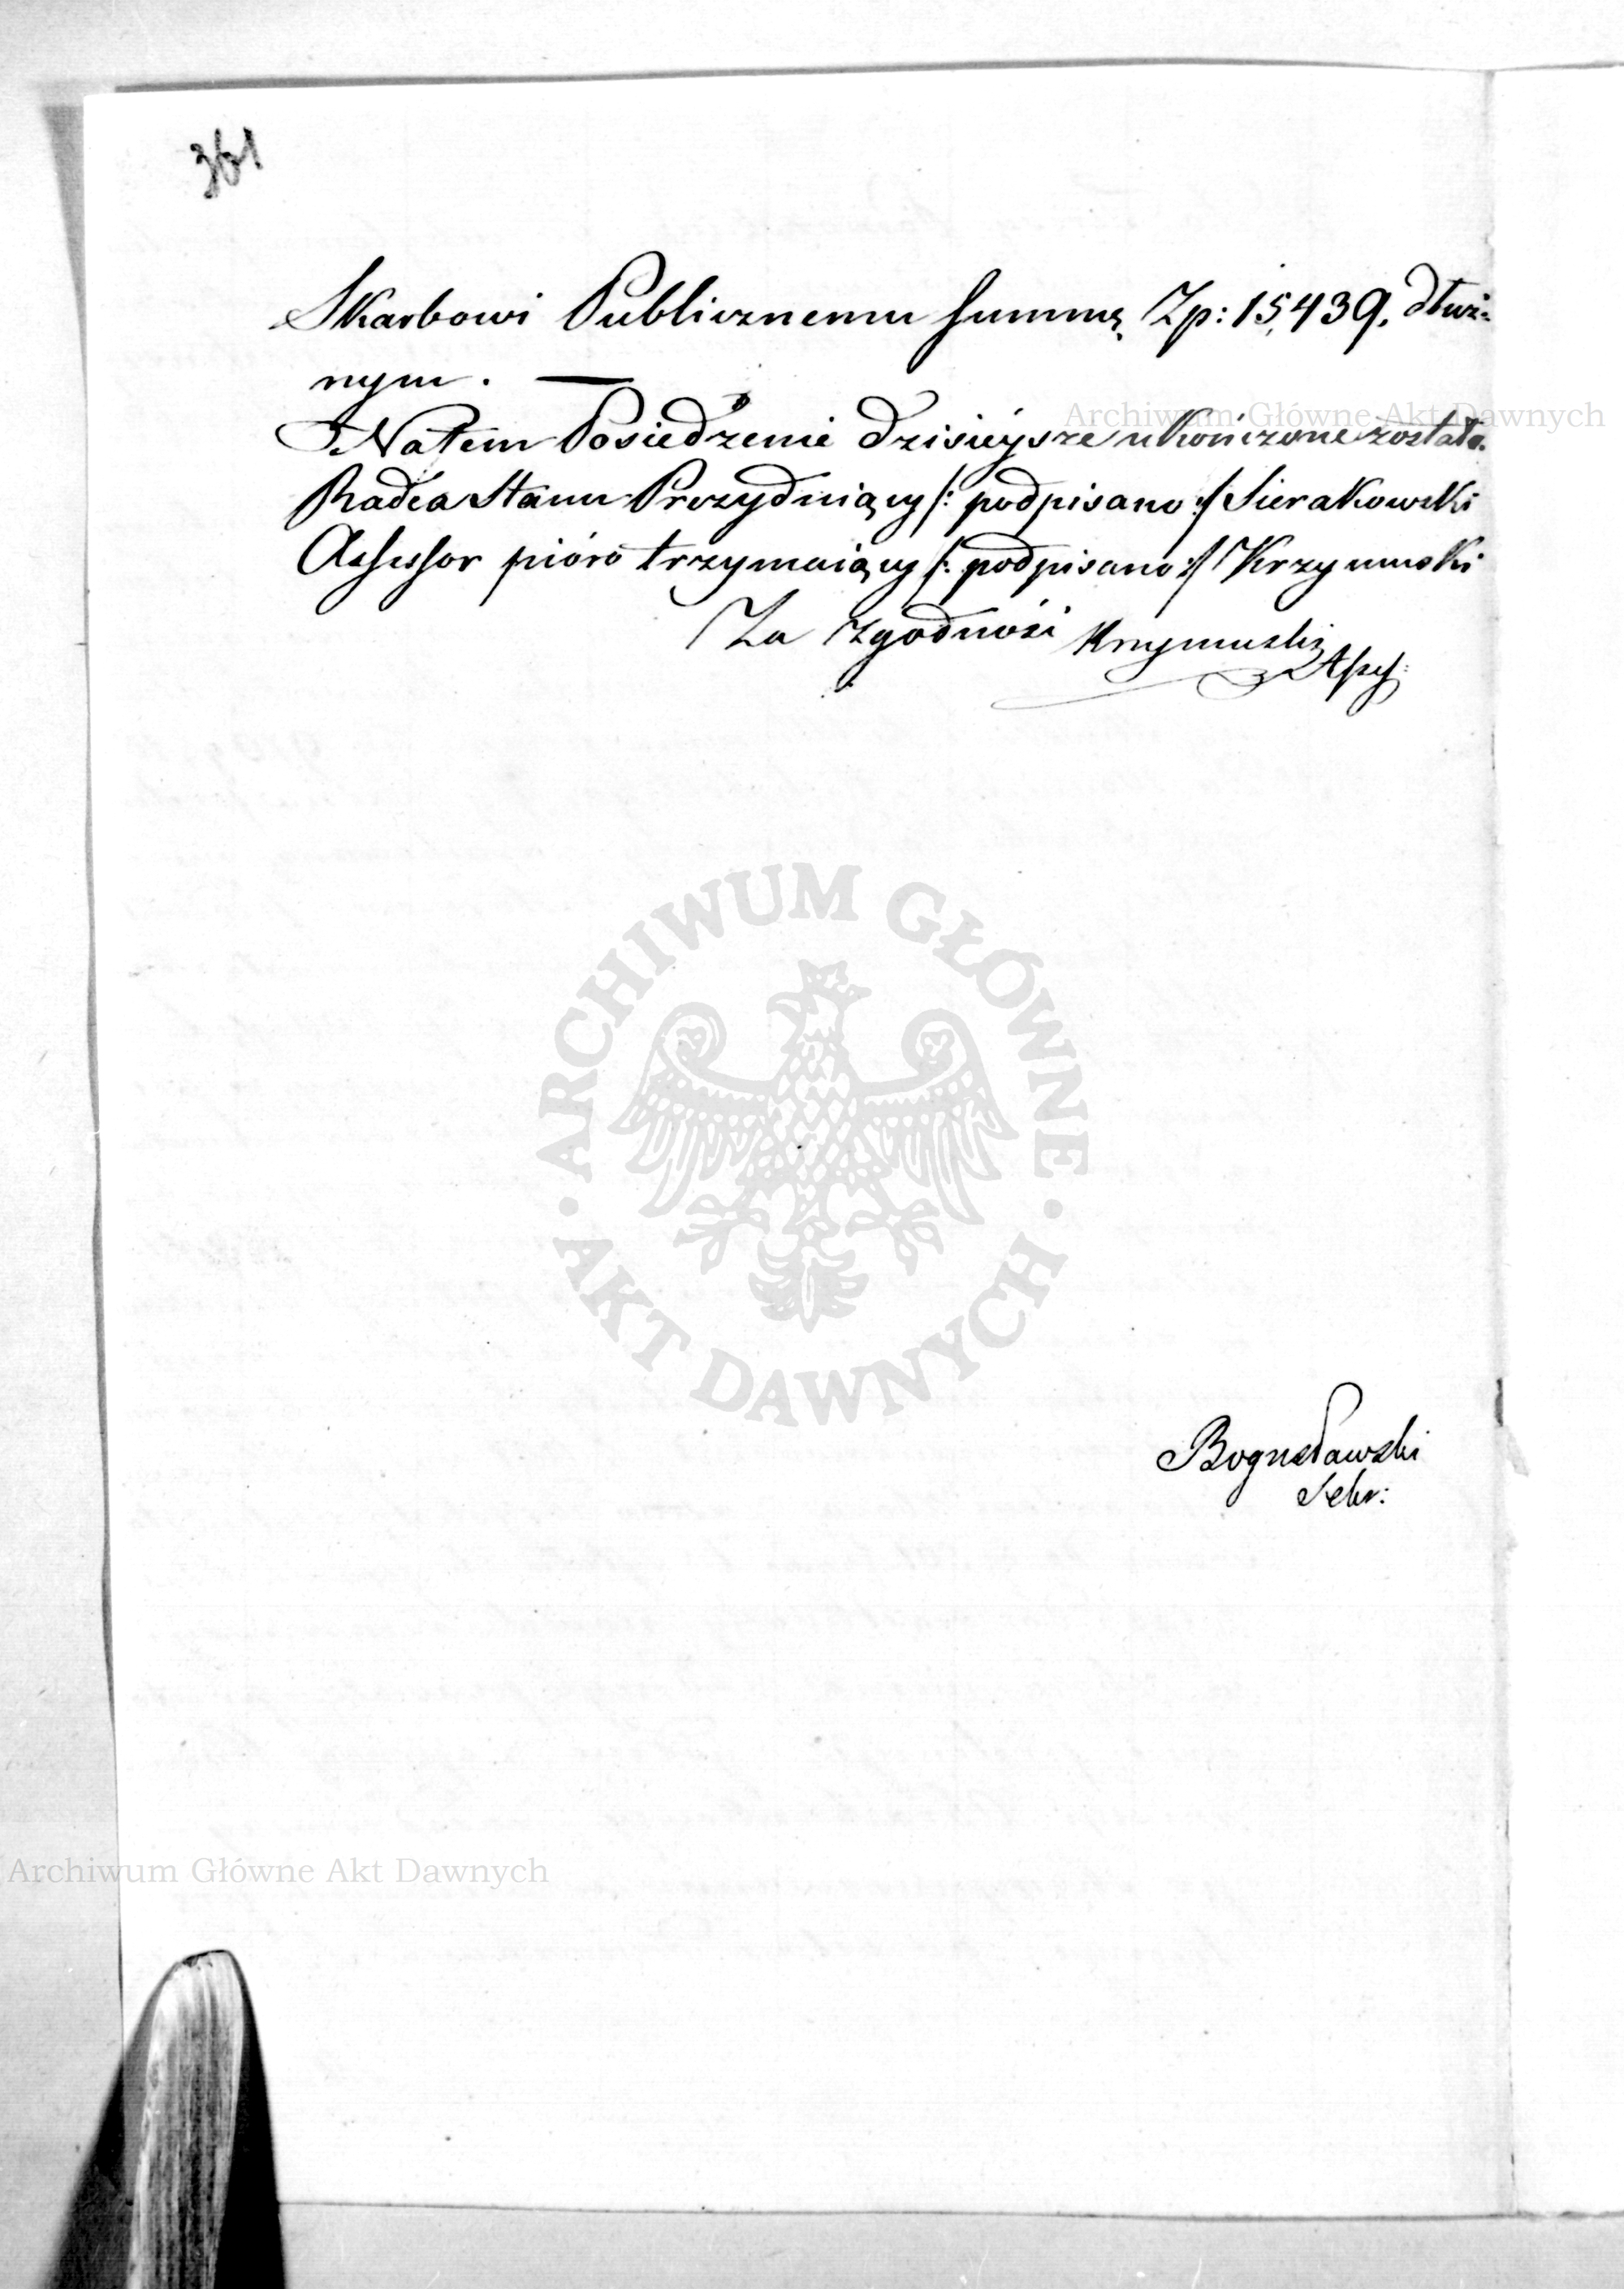 361
Skarbowi Publicznemu summę Zp: 15,439. dłuż-
nym. —
Na tém Posiedzenie dzisieysze ukończone zostało.
Radca Stanu Prezyduiący /: podpisano :/ Sierakowski
Assessor pióro trzymaiący /: podpisano :/ Krzymuski
Za zgodność Krzymuski
Assess:
Bogusławski
Sekr:
Archiwum Główne Akt Dawnych
ARCHIWUM GŁÓWNE · AKT DAWNYCH ·
Archiwum Główne Akt Dawnych